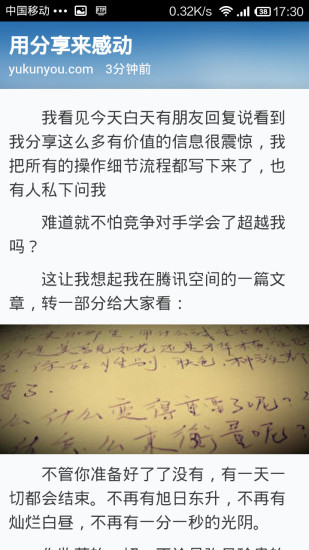 中国移动 ... 0.32K/s 38 17:30
用分享来感动
yukunyou.com 3分钟前
我看见今天白天有朋友回复说看到
我分享这么多有价值的信息很震惊,我
把所有的操作细节流程都写下来了,也
有人私下问我
难道就不怕竞争对手学会了超越我
吗?
这让我想起我在腾讯空间的一篇文
章,转一部分给大家看:
你的性别、肤色、种
了。
么 什么变得重要了呢?
怎么来衡量呢?
不管你准备好了了没有,有一天一
切都会结束。不再有旭日东升,不再有
灿烂白昼,不再有一分一秒的光阴。